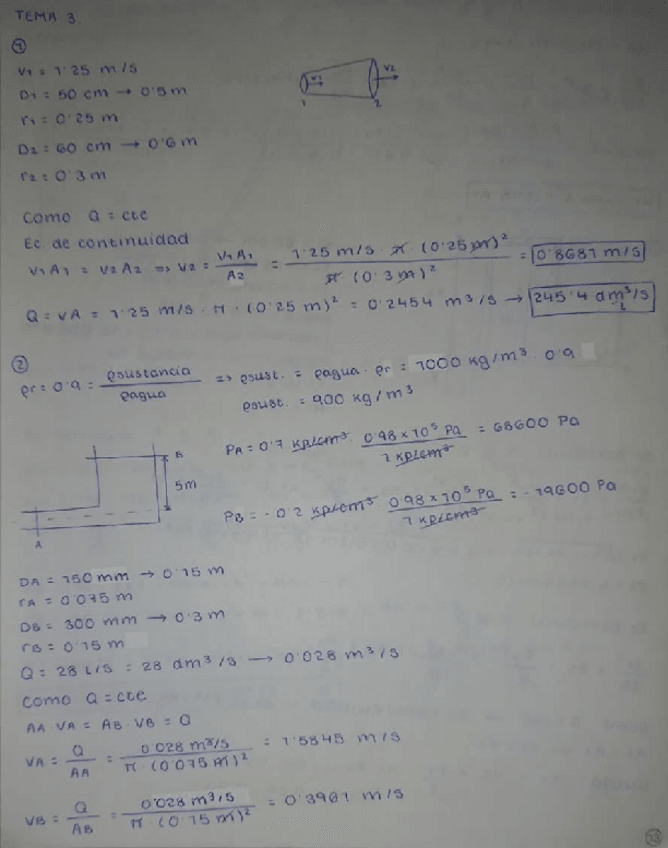 TEMA 3.
①
V1 = 1'25 m/s
D1 = 50 cm → 0'5 m
r1 = 0'25 m
D2 = 60 cm → 0'6 m
r2 = 0'3 m
V1 V2
1 2
Como Q = cte
Ec. de continuidad
V1 A1 = V2 A2 ⇒ V2 = V1 A1 / A2 = 1'25 m/s · π · (0'25 m)² / π (0'3 m)² = 0'8681 m/s
Q = VA = 1'25 m/s · π · (0'25 m)² = 0'2454 m³/s → 245'4 dm³/s
L
②
ρr = 0'9 = ρsustancia / ρagua ⇒ ρsust. = ρagua · ρr = 1000 kg/m³ · 0'9
ρsust. = 900 kg/m³
PA = 0'7 kp/cm² · 0'98 × 10⁵ Pa / 1 kp/cm² = 68600 Pa
B
5m
A
PB = -0'2 kp/cm² · 0'98 × 10⁵ Pa / 1 kp/cm² = -19600 Pa
DA = 150 mm → 0'15 m
rA = 0'075 m
DB = 300 mm → 0'3 m
rB = 0'15 m
Q = 28 L/s = 28 dm³/s → 0'028 m³/s
Como Q = cte
AA · VA = AB · VB = Q
VA = Q / AA = 0'028 m³/s / π · (0'075 m)² = 1'5845 m/s
VB = Q / AB = 0'028 m³/s / π · (0'15 m)² = 0'3961 m/s
13